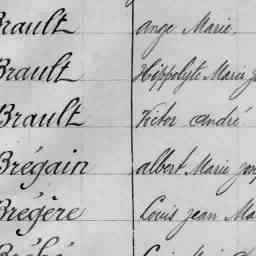 Brault Ange Marie
Brault Hippolyte Marie
Brault Victor André
Brégain Albert Marie
Bregère Louis Jean